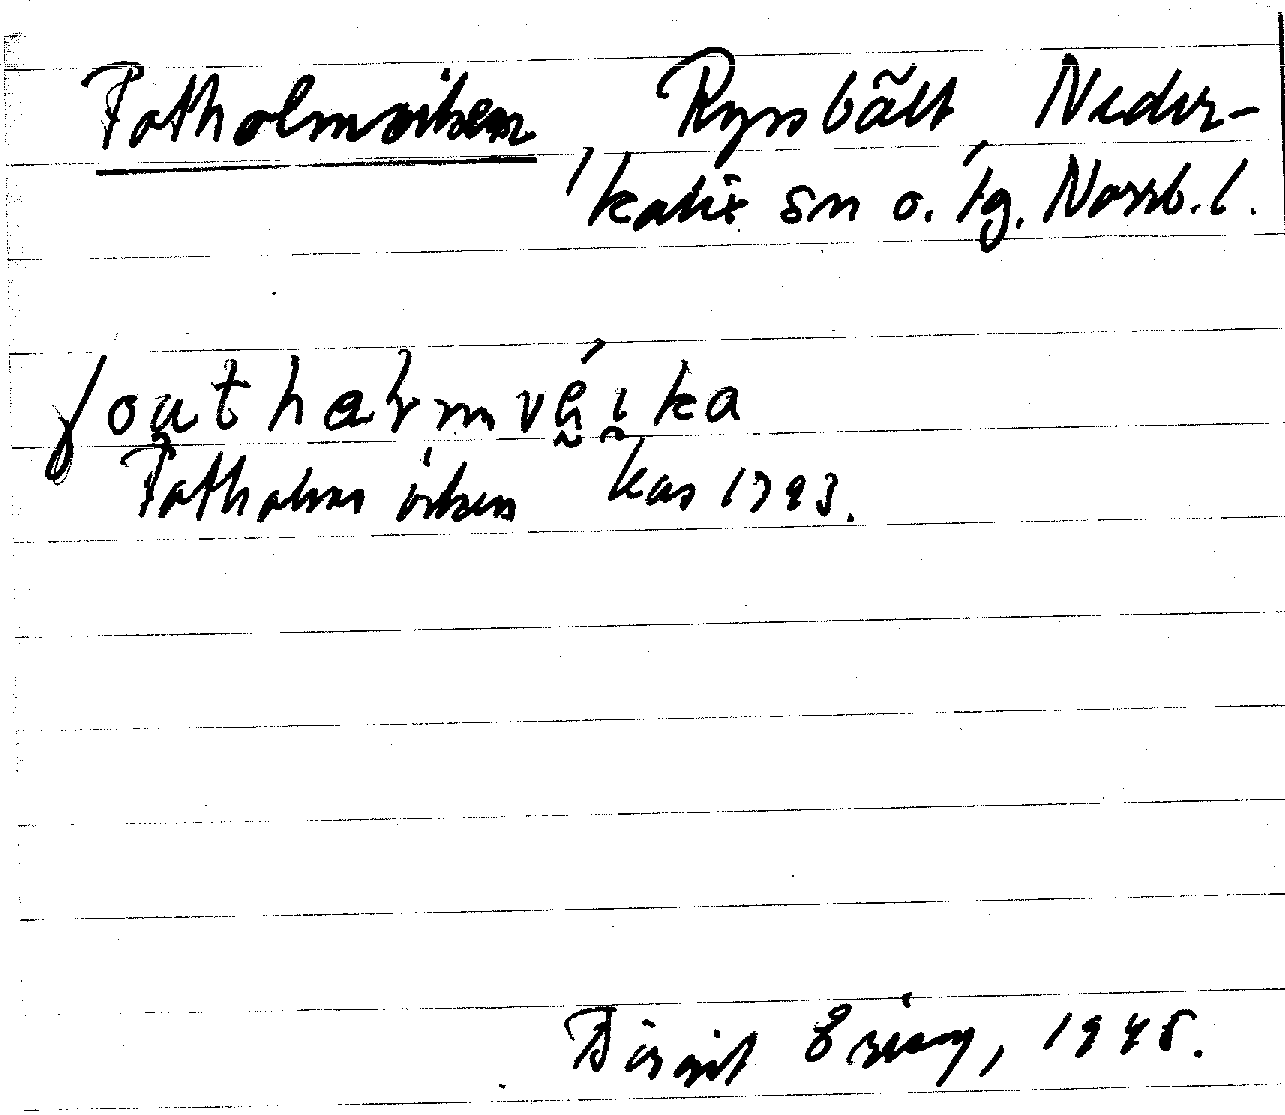 Fotholmviken Rysbält Neder-
kalix sn o. tg. Norrb. l.
fou̯thaɽmvéi̯ka
Fotholms viken kas 1793.
Birgit Ering, 1945.